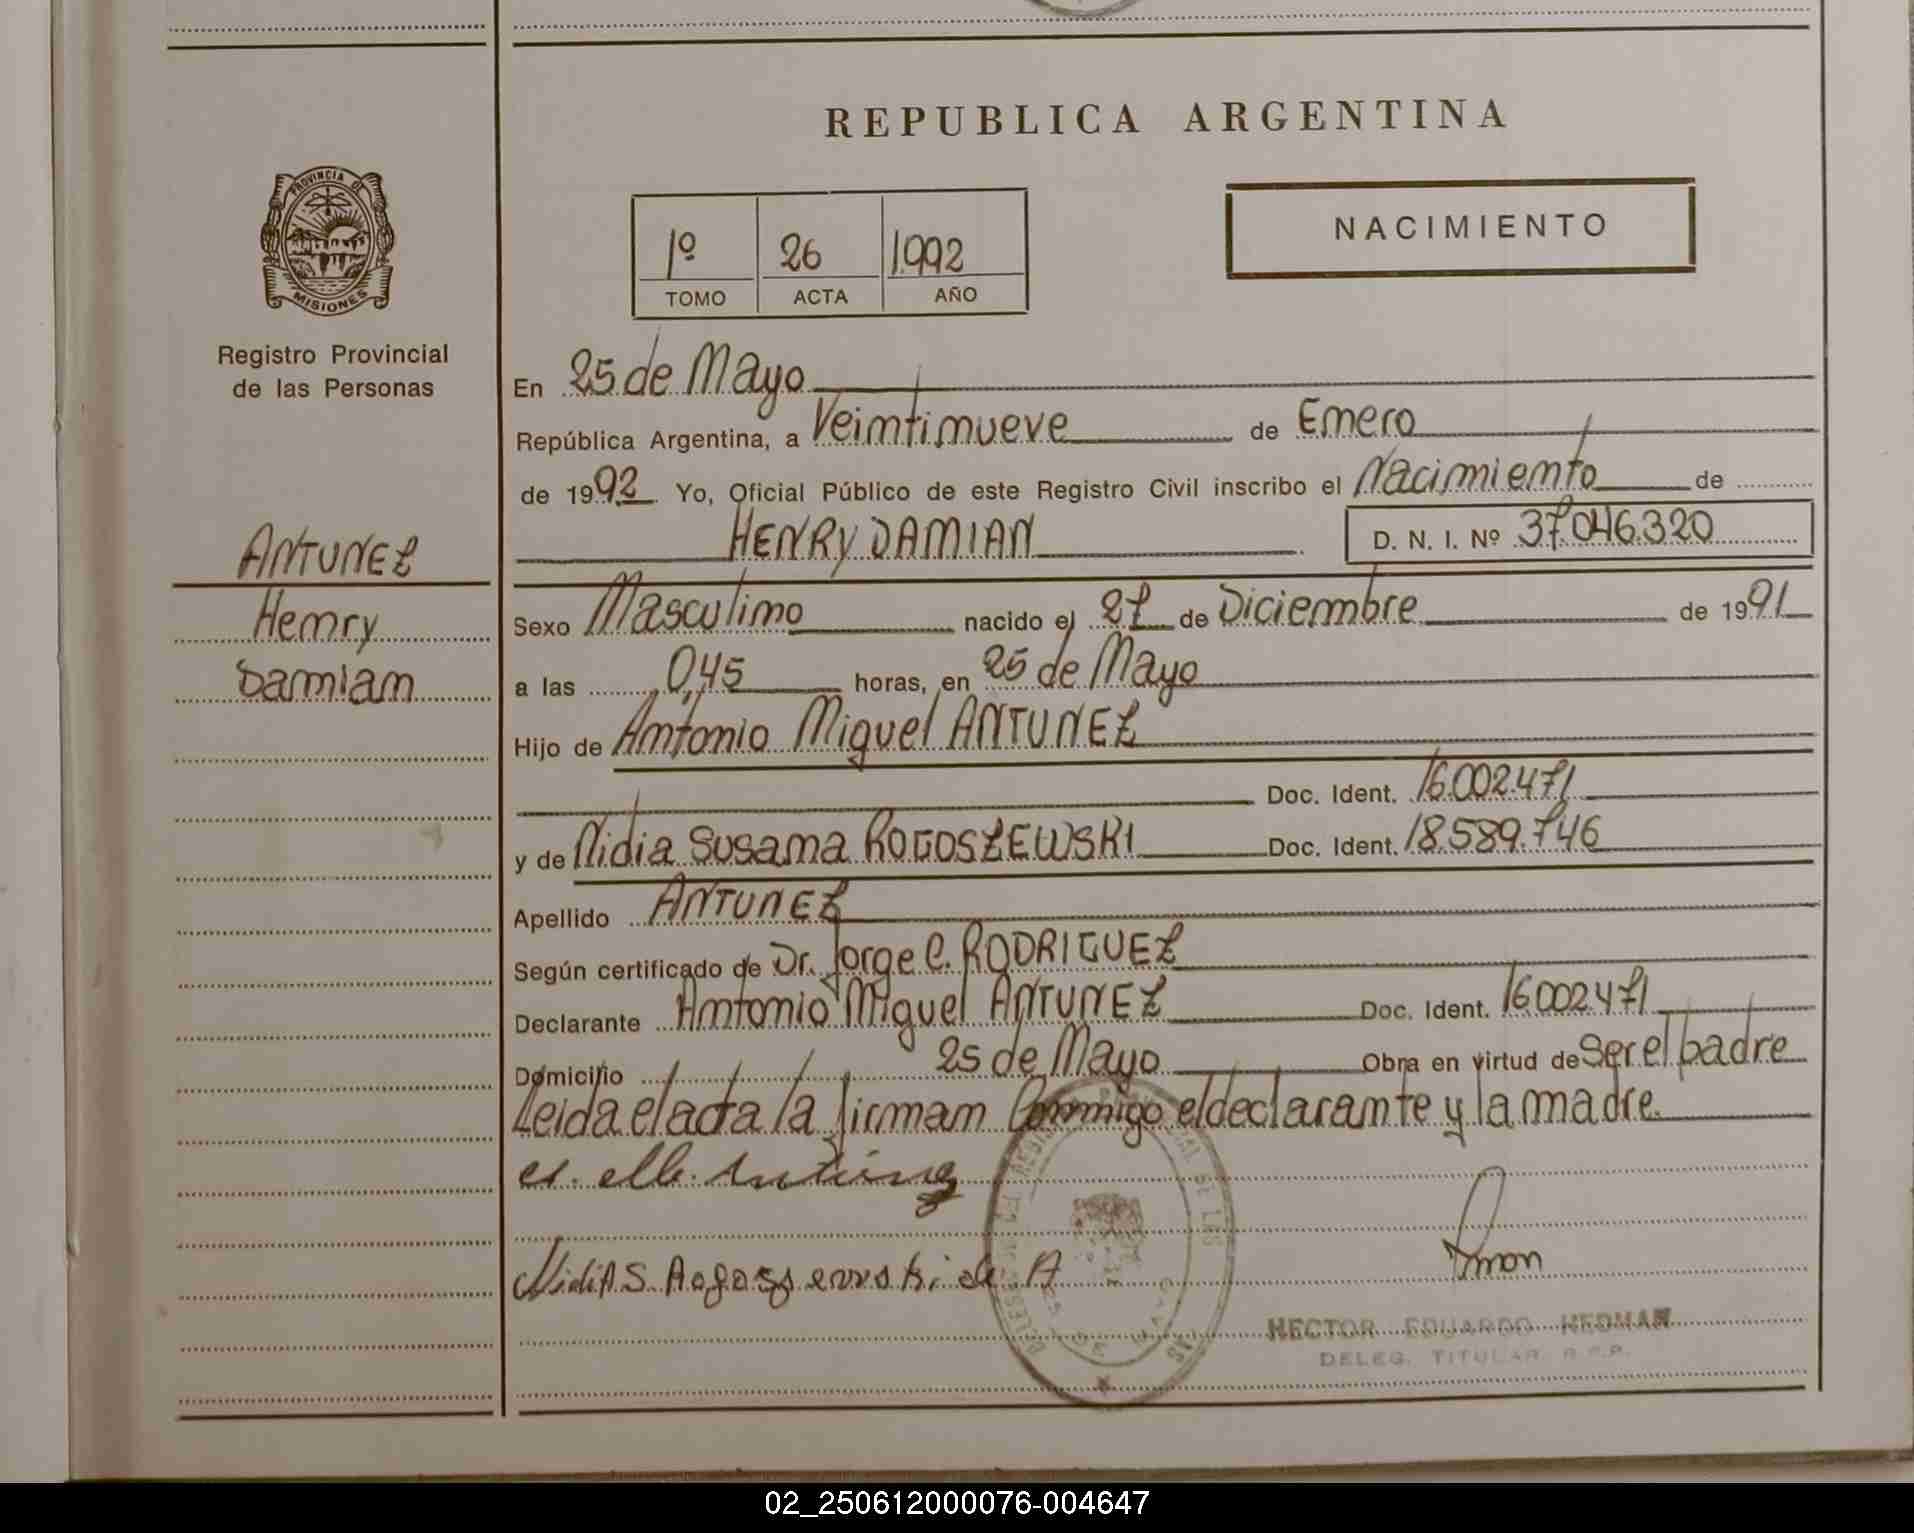 REPUBLICA ARGENTINA
PROVINCIA DE MISIONES
Registro Provincial
de las Personas
1º 26 1.992
TOMO ACTA AÑO
NACIMIENTO
En 25 de Mayo
República Argentina, a Veintinueve de Enero
de 1992 Yo, Oficial Público de este Registro Civil inscribo el Nacimiento de
HENRY DAMIAN D. N. I. Nº 37.046.320
ANTUNEZ
Henry
Damian
Sexo Masculino nacido el 27 de Diciembre de 1991
a las 0,45 horas, en 25 de Mayo
Hijo de Antonio Miguel ANTUNEZ
Doc. Ident. 16.002.471
y de Nidia Susana ROGOSZEWSKI Doc. Ident. 18.589.746
Apellido ANTUNEZ
Según certificado de Dr. Jorge C. RODRIGUEZ
Declarante Antonio Miguel ANTUNEZ Doc. Ident. 16.002.471
Domicilio 25 de Mayo Obra en virtud de Ser el padre
Leida el acta la firman Conmigo el declarante y la madre.
HECTOR EDUARDO HEDMAN
DELEG. TITULAR R.P.P.
02_250612000076-004647